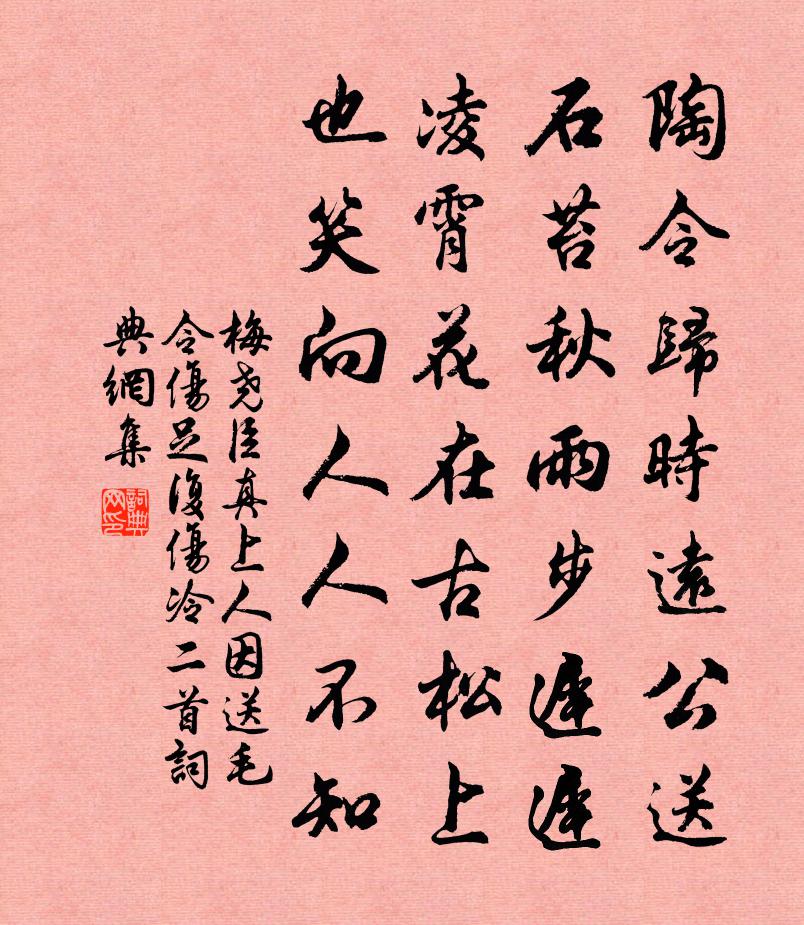 陶令歸時遠公送
石苔秋雨步遲遲
凌霄花在古松上
也笑向人人不知
梅堯臣真上人因送毛
令傷足復傷冷二首詞
典網集
詞典网印